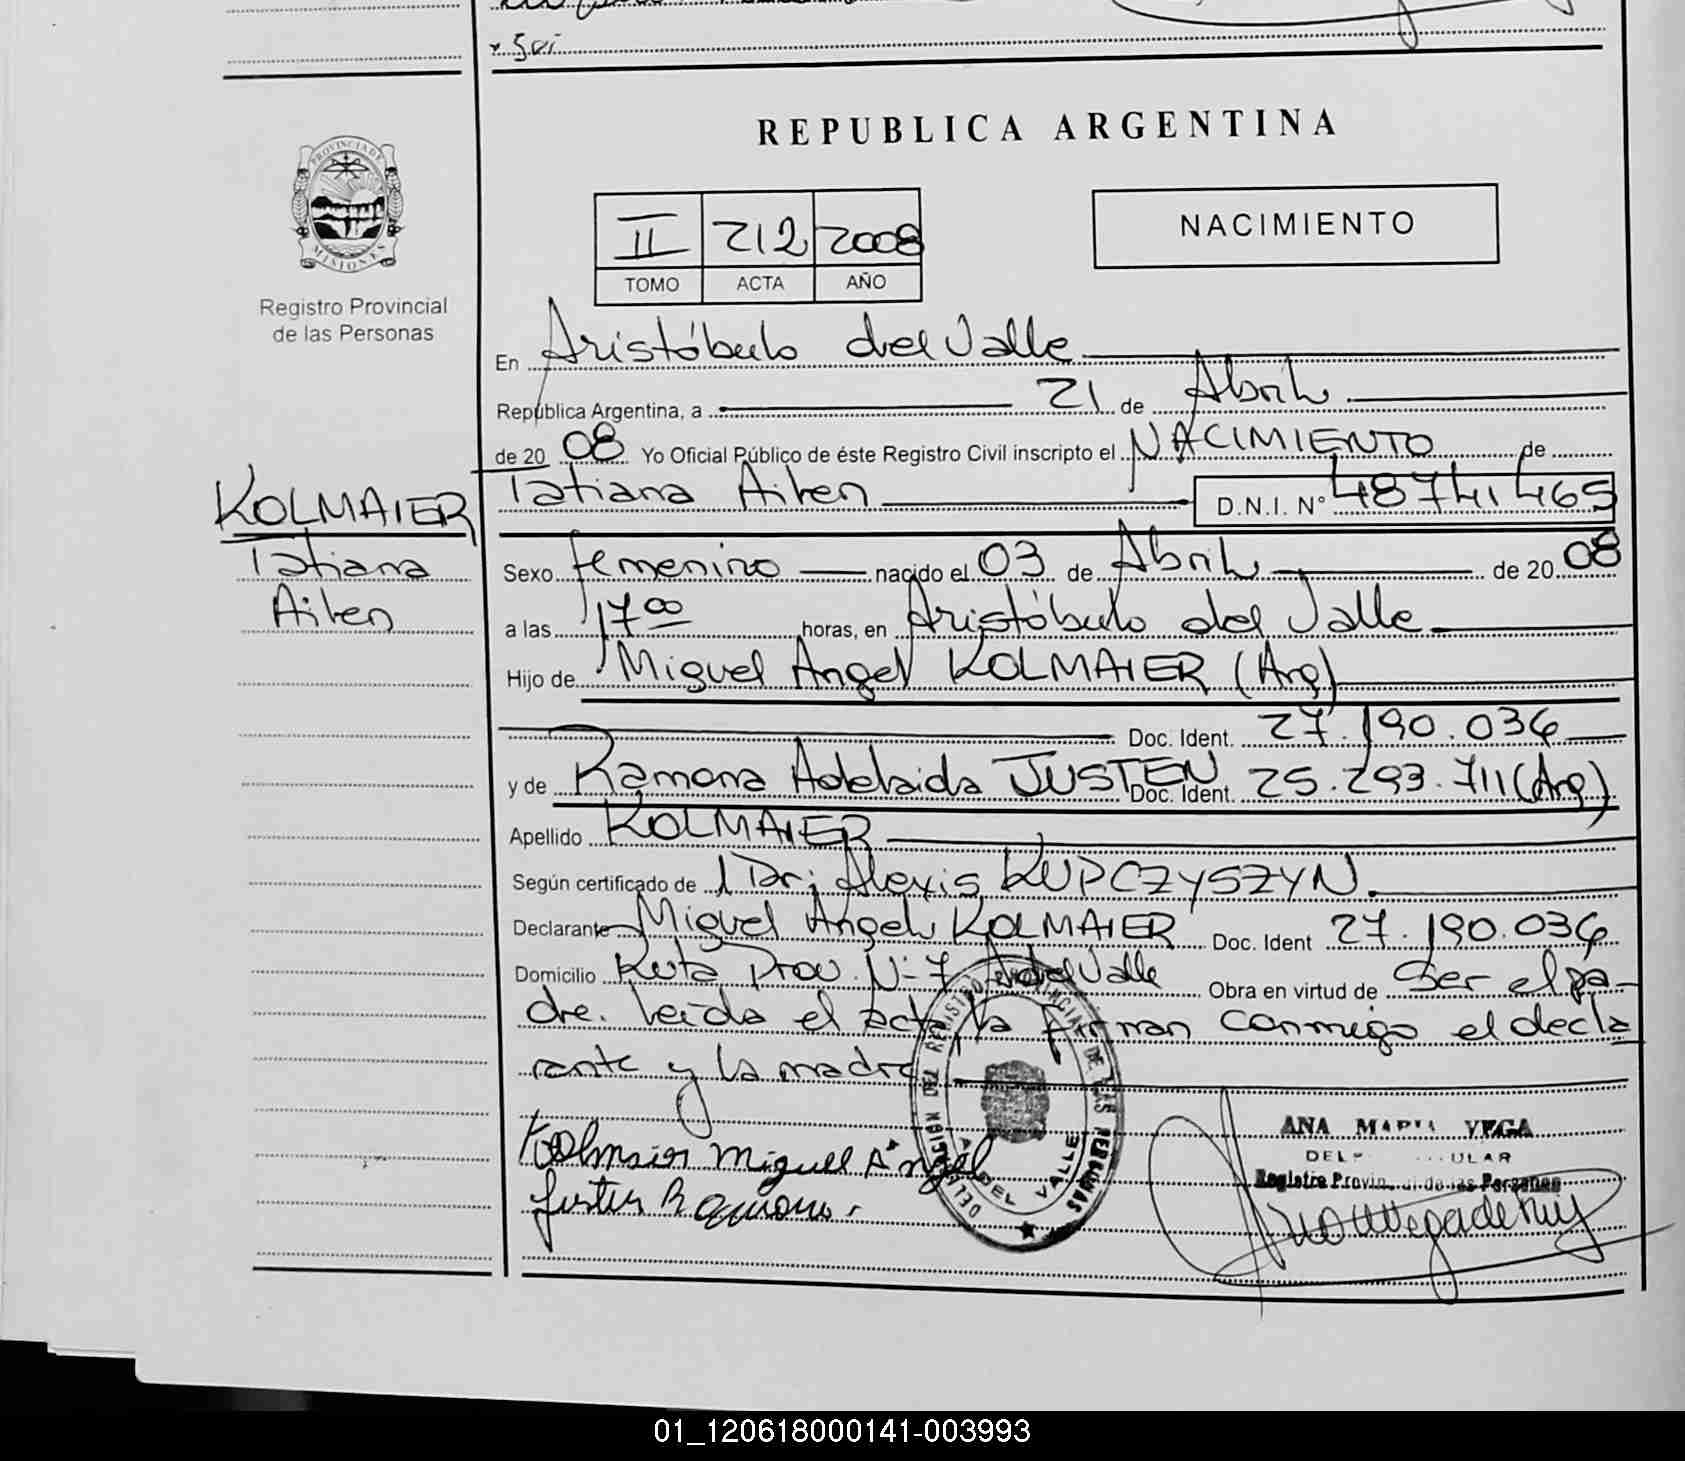 PROVINCIA DE
MISIONES
Registro Provincial
de las Personas
KOLMAIER
Tatiana
Ailen
REPUBLICA ARGENTINA
II 212 2008
TOMO ACTA AÑO
NACIMIENTO
En Aristóbulo del Valle
República Argentina, a 21 de Abril
de 2008 Yo Oficial Público de éste Registro Civil inscripto el NACIMIENTO de
Tatiana Ailen D.N.I. N° 48741465
Sexo femenino nacido el 03 de Abril de 2008
a las 17 00 horas, en Aristóbulo del Valle
Hijo de Miguel Angel KOLMAIER (Arg)
Doc. Ident. 27.190.036
y de Ramona Adelaida JUSTEN Doc. Ident. 25.293.711 (Arg)
Apellido KOLMAIER
Según certificado de Dr: Alexis KUPCZYSZYN.
Declarante Miguel Angel KOLMAIER Doc. Ident 27.190.036
Domicilio Ruta Prov. N-7 A del Valle Obra en virtud de ser el pa-
dre. Leída el acta, la firman conmigo el decla
rante y la madre
Kolmaier Miguel Angel
Justen Ramona.
DELEGACION DEL REGISTRO PROVINCIAL DE LAS PERSONAS
A. DEL VALLE
ANA MARIA VEGA
Registro Provincial de las Personas
01_120618000141-003993